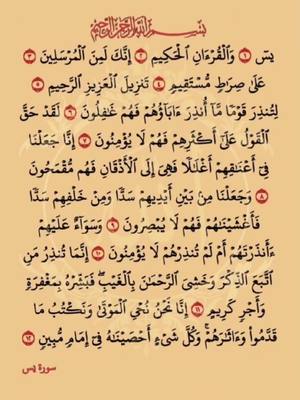 بِسْمِ اللَّهِ الرَّحْمَٰنِ الرَّحِيمِ
يسٓ ١ وَالْقُرْءَانِ الْحَكِيمِ ٢ إِنَّكَ لَمِنَ الْمُرْسَلِينَ ٣
عَلَىٰ صِرَٰطٍ مُّسْتَقِيمٍ ٤ تَنزِيلَ الْعَزِيزِ الرَّحِيمِ ٥
لِتُنذِرَ قَوْمًا مَّآ أُنذِرَ ءَابَآؤُهُمْ فَهُمْ غَٰفِلُونَ ٦ لَقَدْ حَقَّ
الْقَوْلُ عَلَىٰٓ أَكْثَرِهِمْ فَهُمْ لَا يُؤْمِنُونَ ٧ إِنَّا جَعَلْنَا
فِىٓ أَعْنَٰقِهِمْ أَغْلَٰلًا فَهِىَ إِلَى الْأَذْقَانِ فَهُم مُّقْمَحُونَ
٨ وَجَعَلْنَا مِنۢ بَيْنِ أَيْدِيهِمْ سَدًّا وَمِنْ خَلْفِهِمْ سَدًّا
فَأَغْشَيْنَٰهُمْ فَهُمْ لَا يُبْصِرُونَ ٩ وَسَوَآءٌ عَلَيْهِمْ
ءَأَنذَرْتَهُمْ أَمْ لَمْ تُنذِرْهُمْ لَا يُؤْمِنُونَ ١٠ إِنَّمَا تُنذِرُ مَنِ
اتَّبَعَ الذِّكْرَ وَخَشِىَ الرَّحْمَٰنَ بِالْغَيْبِ فَبَشِّرْهُ بِمَغْفِرَةٍ
وَأَجْرٍ كَرِيمٍ ١١ إِنَّا نَحْنُ نُحْىِ الْمَوْتَىٰ وَنَكْتُبُ مَا
قَدَّمُوا وَءَاثَٰرَهُمْ وَكُلَّ شَىْءٍ أَحْصَيْنَٰهُ فِىٓ إِمَامٍ مُّبِينٍ ١٢
سورة يس